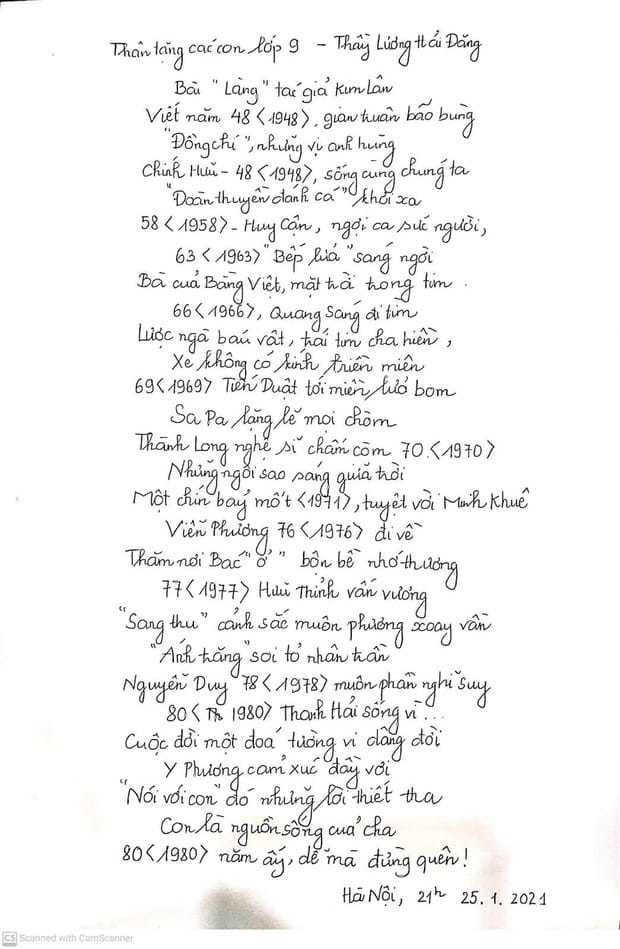 Thân tặng các con lớp 9 - Thầy Lương Hải Đăng
Bài "Làng" tác giả Kim Lân
Viết năm 48 <1948>, gian truân bão bùng
"Đồng chí", những vị anh hùng
Chính Hữu - 48 <1948>, sống cùng chúng ta
"Đoàn thuyền đánh cá" khơi xa
58 <1958> - Huy Cận, ngợi ca sức người,
63 <1963> "Bếp lửa" sáng ngời
Bà của Bằng Việt, mặt trời trong tim.
66 <1966>, Quang Sáng đi tìm
Lược ngà báu vật, trái tim cha hiền,
Xe không có kính triền miên
69 <1969> Tiến Duật tới miền lửa bom
Sa Pa lặng lẽ mọi chòm
Thành Long nghệ sĩ chấm còm 70 <1970>
Những ngôi sao sáng giữa trời
Một chín bảy mốt <1971>, tuyệt vời Minh Khuê
Viễn Phương 76 <1976> đi về
Thăm nơi Bác "ở" bộn bề nhớ thương
77 <1977> Hữu Thỉnh vấn vương
"Sang thu" cảnh sắc muôn phương xoay vần
"Ánh trăng" soi tỏ nhân trần
Nguyễn Duy 78 <1978> muôn phần nghĩ suy
80 < 1980> Thanh Hải sống vì ...
Cuộc đời một đoá tường vi dâng đời
Y Phương cảm xúc đầy vơi
"Nói với con" đó những lời thiết tha
Con là nguồn sống của cha
80 <1980> năm ấy, dễ mà đừng quên!
Hà Nội, 21h 25.1.2021
CS Scanned with CamScanner